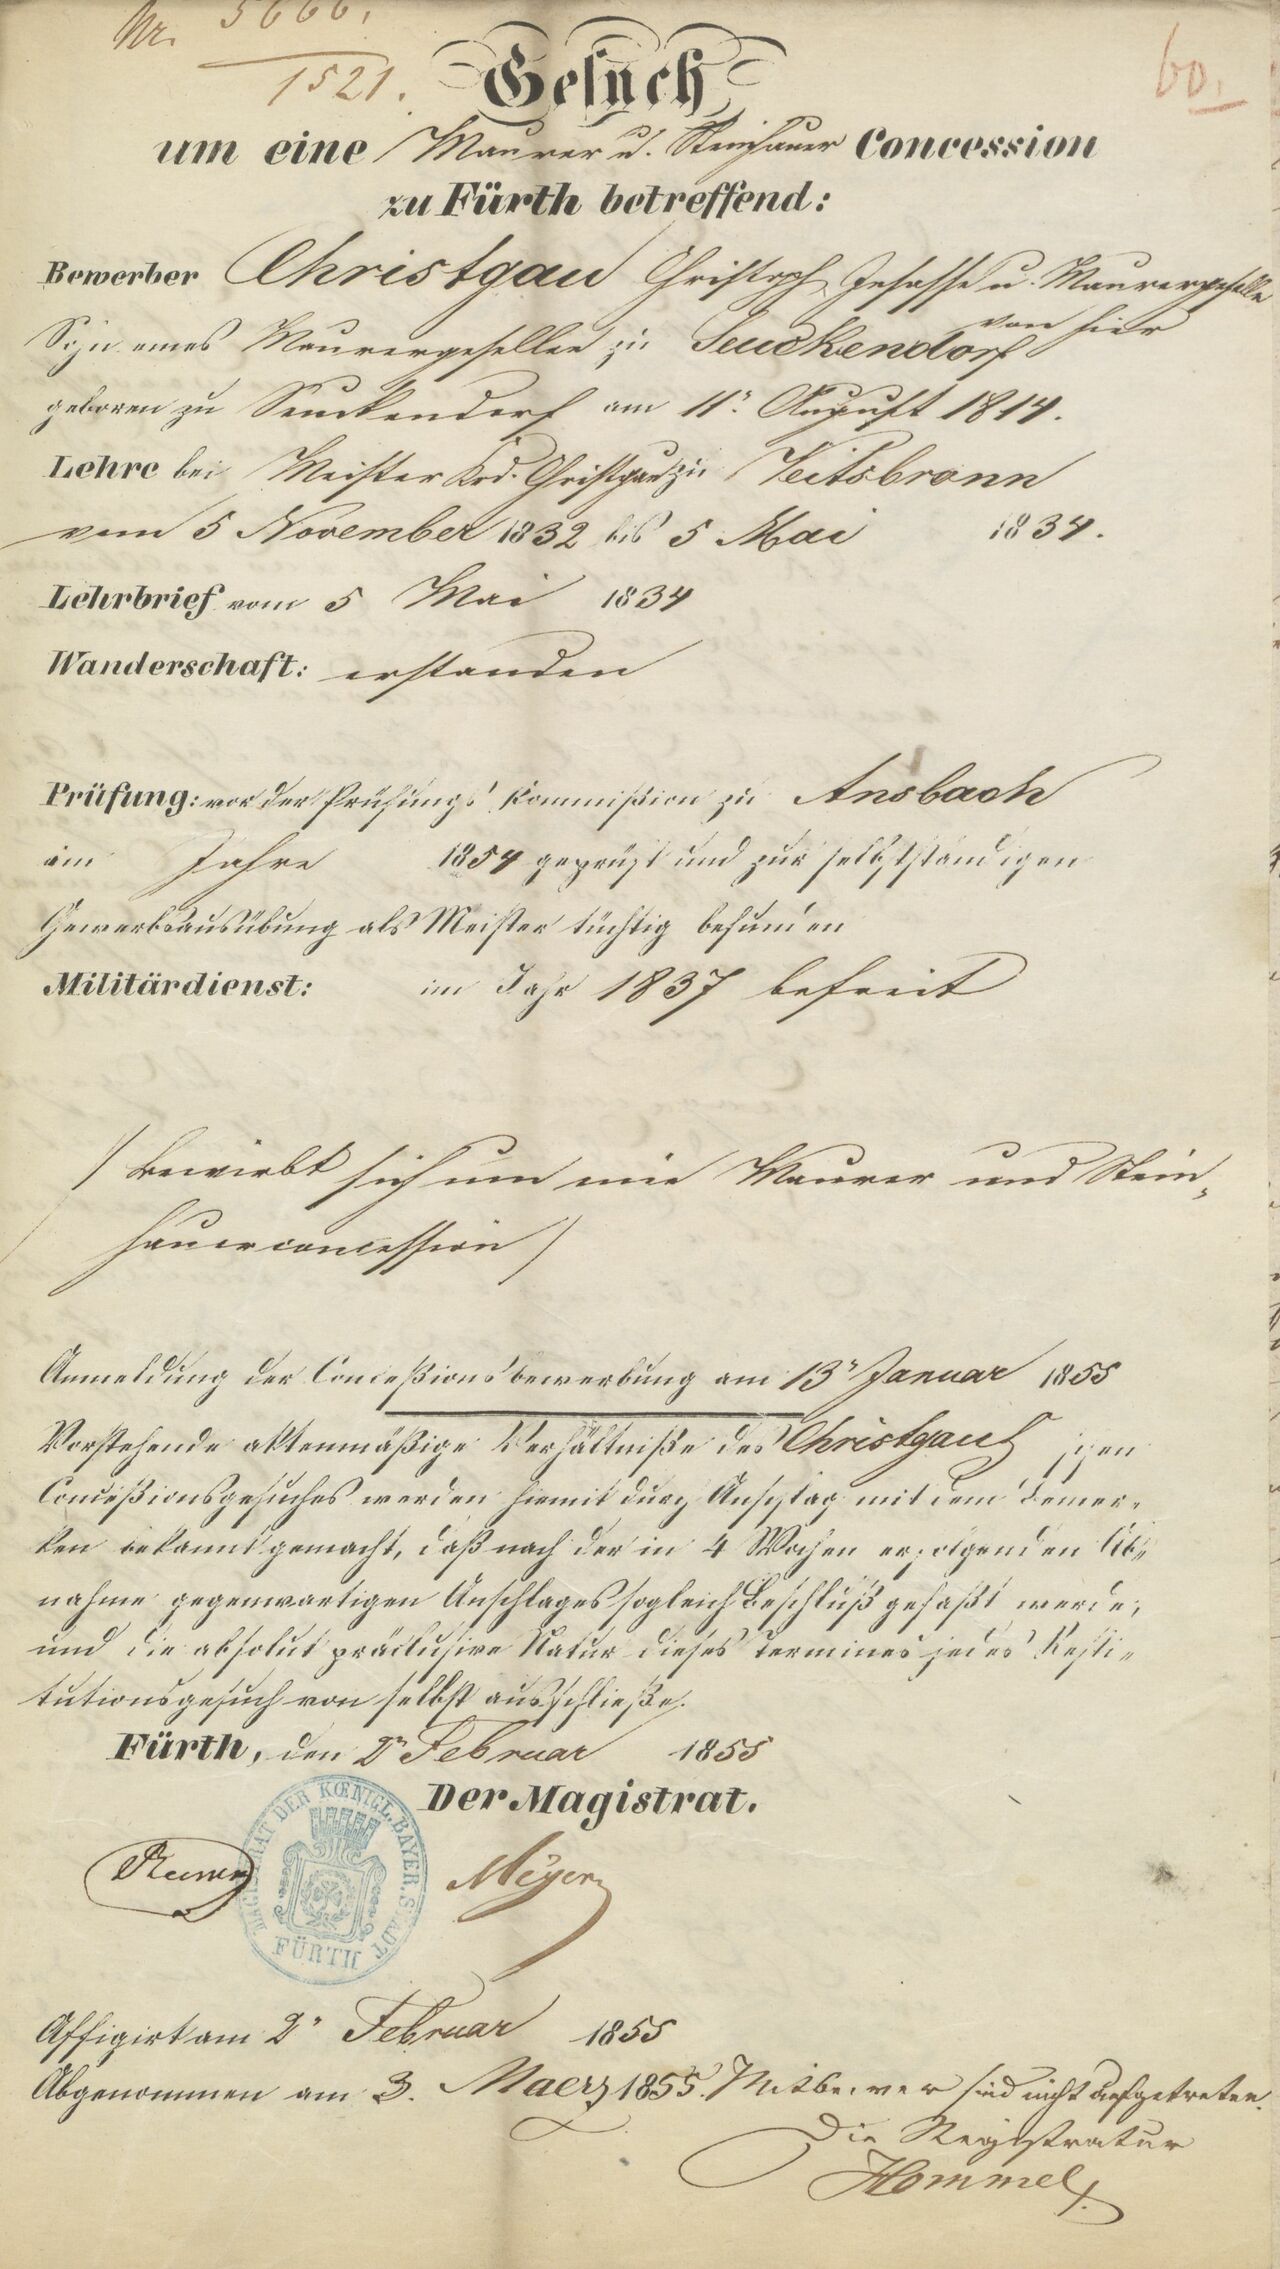 Nr. 5666.
1521.
60.
Gesuch
um eine Maurer u. Steinhauer Concession
zu Fürth betreffend:
Bewerber Christgau Christoph Insasse u. Maurergeselle
von hier
Sohn eines Maurergesellen zu Seuckendorf
geboren zu Seuckendorf am 11t August 1814.
Lehre bei Meister Christgau zu Veitsbronn
vom 5 November 1832 bis 5 Mai 1834.
Lehrbrief vom 5 Mai 1834
Wanderschaft: erstanden
Prüfung: vor der Prüfungs Kommißion zu Ansbach
im Jahre 1854 geprüft und zur selbstständigen
Gewerbsausübung als Meister tüchtig befunden
Militärdienst: im Jahr 1837 befreit
/ bewirbt sich um eine Maurer und Stein,
hauerconcession /
Anmeldung der Conceßionsbewerbung am 13t Januar 1855
Vorstehende aktenmäßige Verhältniße des Christgau'schen
Conceßionsgesuches werden hiemit durch Anschlag mit dem Bemer-
ken bekannt gemacht, daß nach der in 4 Wochen erfolgenden Ab-
nahme gegenwärtigen Anschlages sogleich Beschluß gefaßt werde,
und die absolut präclusive Natur dieses Termines jedes Resti-
tutionsgesuch von selbst ausschließe.
Fürth, den 2t Februar 1855
Der Magistrat.
MAGISTRAT DER KŒNIGL. BAYER. STADT FÜRTH
Meyer
Affigirt am 2t Februar 1855
Abgenommen am 3. Maerz 1855. Mitbewerber sind nicht aufgetreten.
Die Registratur
Hommel